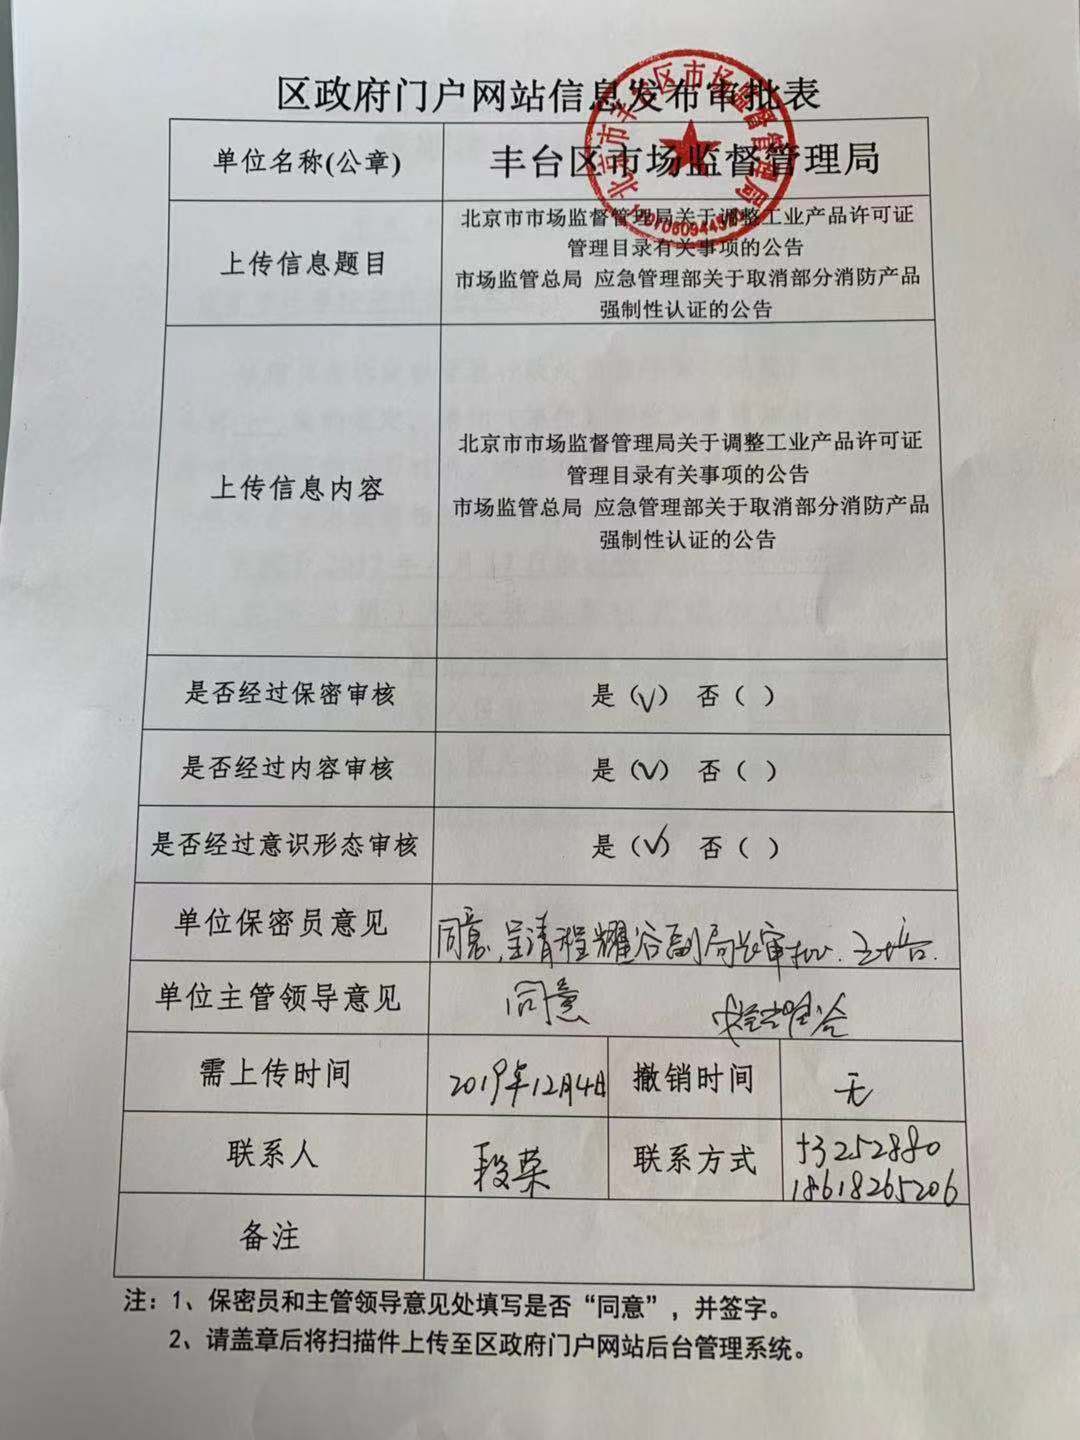 区政府门户网站信息发布审批表
北京市丰台区市场监督管理局
单位名称(公章) 丰台区市场监督管理局
上传信息题目
北京市市场监督管理局关于调整工业产品许可证
管理目录有关事项的公告
市场监管总局 应急管理部关于取消部分消防产品
强制性认证的公告
上传信息内容
北京市市场监督管理局关于调整工业产品许可证
管理目录有关事项的公告
市场监管总局 应急管理部关于取消部分消防产品
强制性认证的公告
是否经过保密审核 是(√) 否( )
是否经过内容审核 是(√) 否( )
是否经过意识形态审核 是(√) 否( )
单位保密员意见 同意,呈请程耀谷副局长审批.
单位主管领导意见 同意
需上传时间 2019年12月4日 撤销时间 无
联系人 段荣 联系方式 83252880
18618265206
备注
注：1、保密员和主管领导意见处填写是否“同意”，并签字。
2、请盖章后将扫描件上传至区政府门户网站后台管理系统。